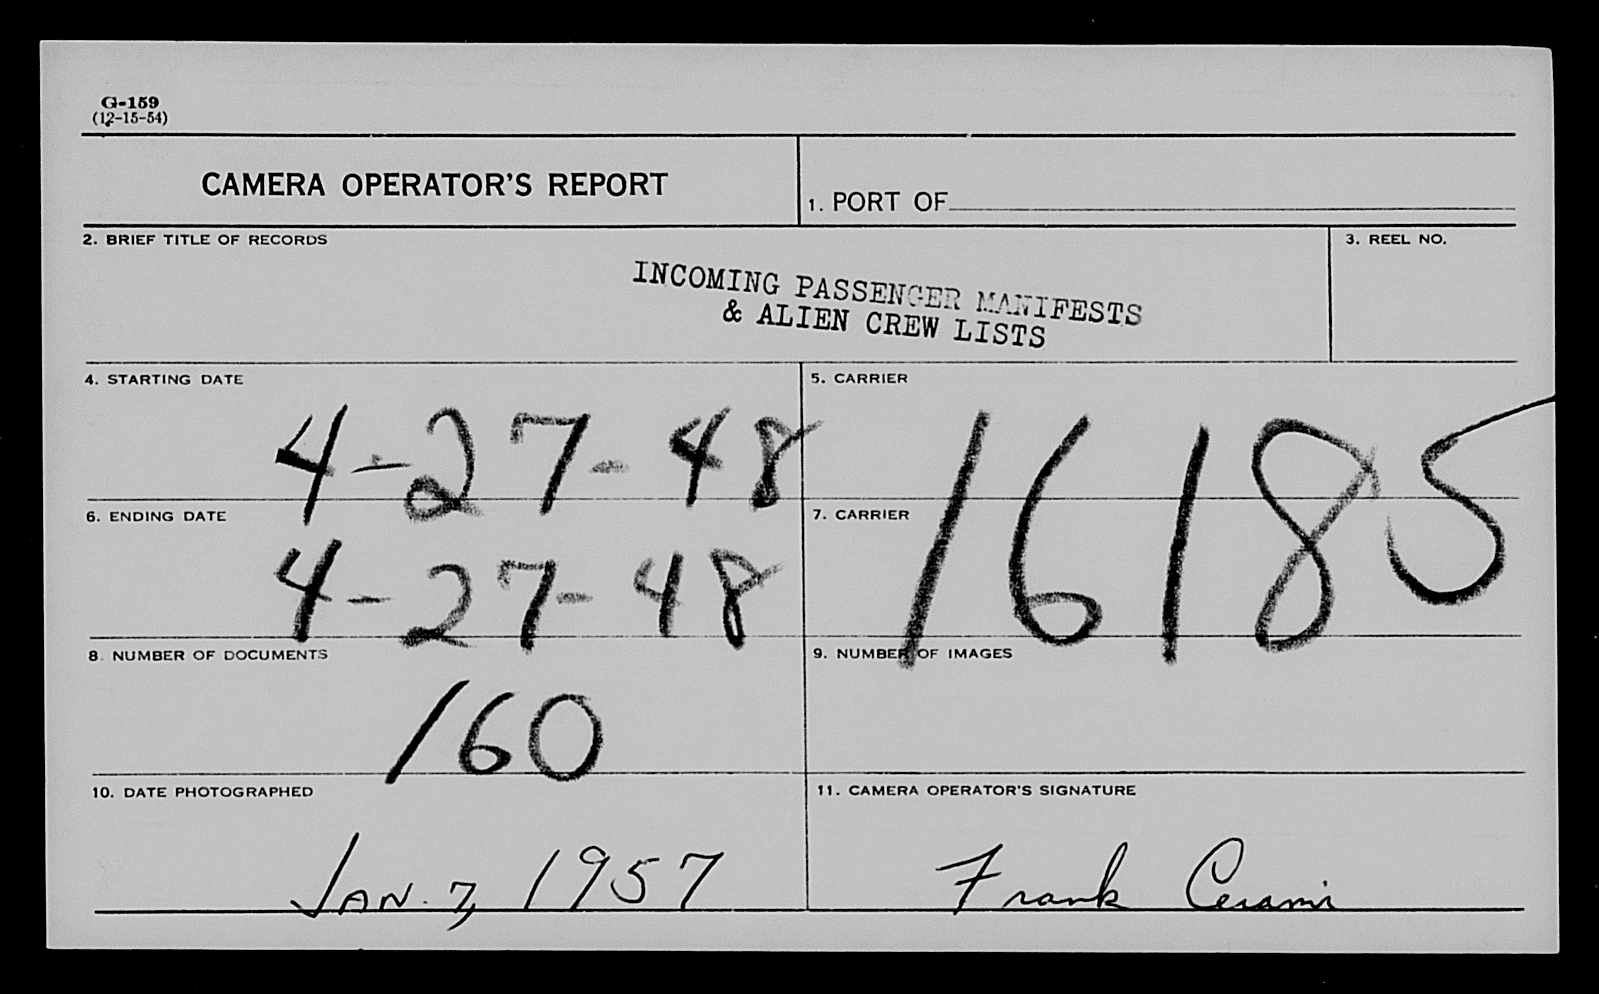 G-159
(12-15-54)
CAMERA OPERATOR'S REPORT
1. PORT OF
2. BRIEF TITLE OF RECORDS
3. REEL NO.
INCOMING PASSENGER MANIFESTS
& ALIEN CREW LISTS
4. STARTING DATE
4-27-48
5. CARRIER
16185
6. ENDING DATE
4-27-48
7. CARRIER
8. NUMBER OF DOCUMENTS
160
9. NUMBER OF IMAGES
10. DATE PHOTOGRAPHED
JAN. 7, 1957
11. CAMERA OPERATOR'S SIGNATURE
Frank Cerami